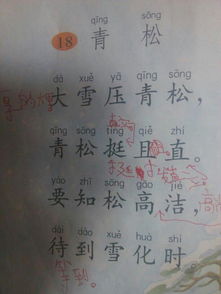 qīng sōng
18 青 松
dà xuě yā qīng sōng
大雪压青松，
qīng sōng tǐng qiě zhí
青松挺且直。
yào zhī sōng gāo jié
要知松高洁，
dài dào xuě huà shí
待到雪化时。
等到。